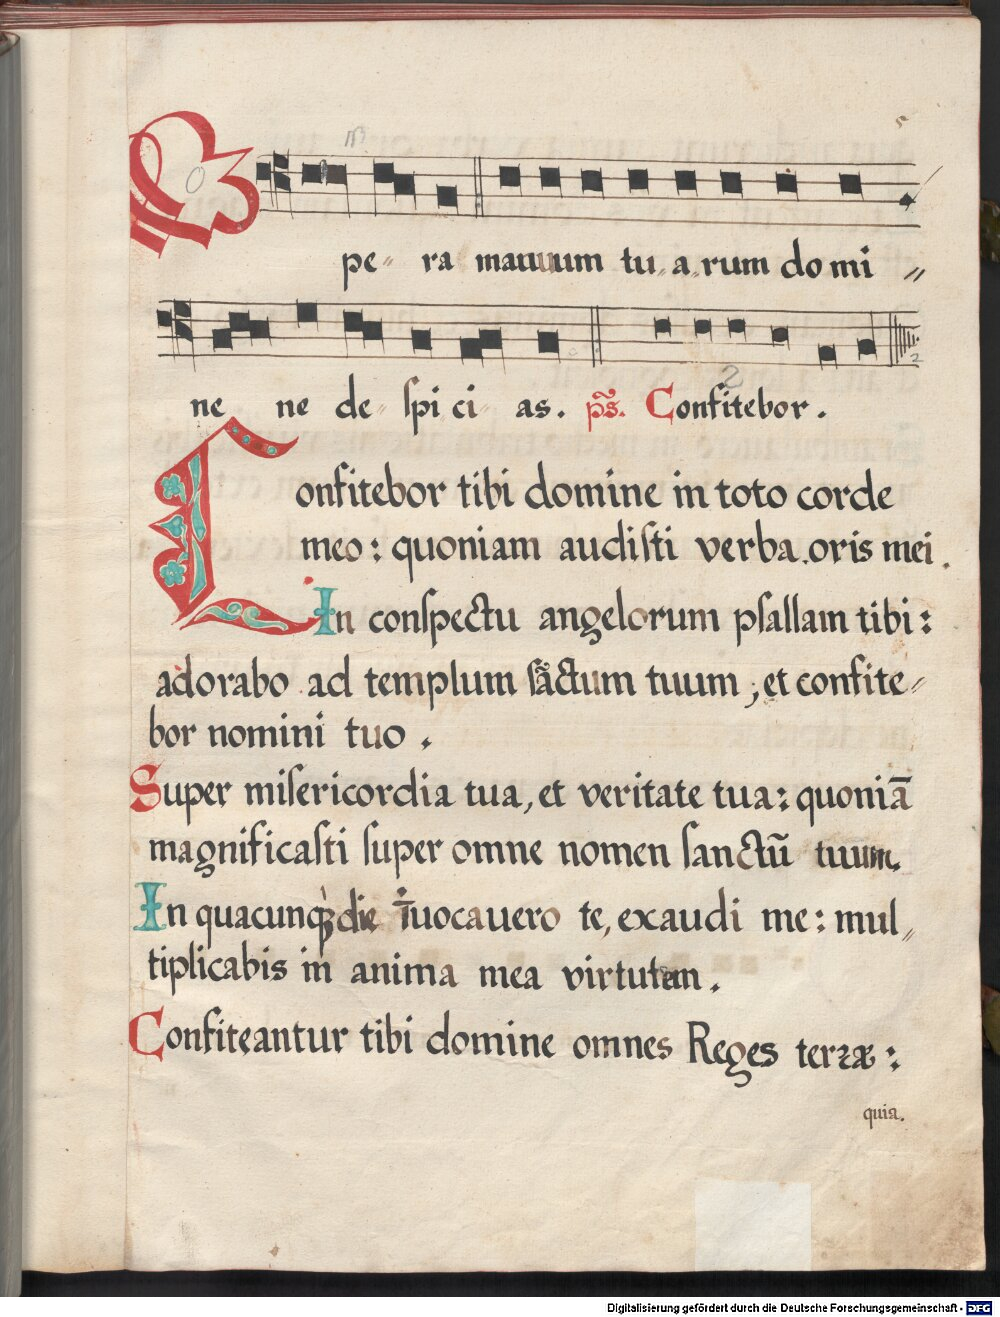 5
O
pe〃 ra manuum tu〃 a〃 rum do mi 〃
ne ne de〃 ſpi ci〃 as. ps̃. Confitebor.
2
Confitebor tibi domine in toto corde
meo: quoniam audiſti verba oris mei.
In conſpectu angelorum pſallam tibi:
adorabo ad templum ſãctum tuum, et confite〃
bor nomini tuo.
Super miſericordia tua, et veritate tua: quoniã
magnificaſti ſuper omne nomen ſanctũ tuum.
In quacunqꝫ die ĩuocauero te, exaudi me: mul〃
tiplicabis in anima mea virtutem.
Confiteantur tibi domine omnes Reges terræ:
quia.
Digitalisierung gefördert durch die Deutsche Forschungsgemeinschaft - DFG